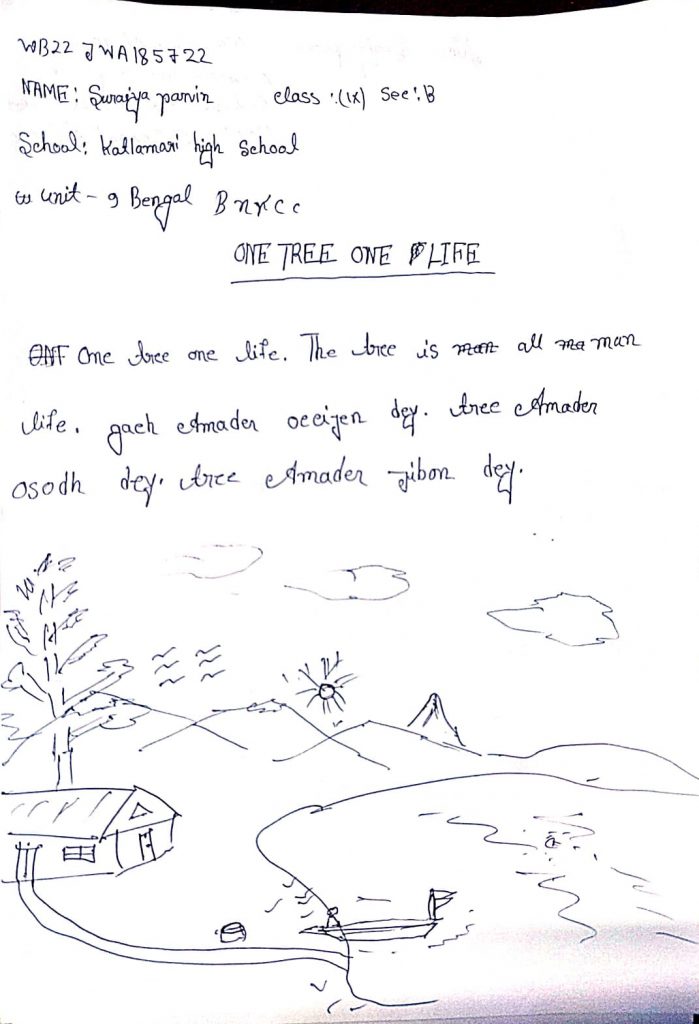 WB22 JWA185722
NAME: Surajya parvin class :(ix) Sec:B
School: Kallamari high School
unit - 9 Bengal Bn NCC
ONE TREE ONE LIFE
One tree one life. The tree is all man
life. gach Amader occijen dey. tree Amader
osodh dey. tree Amader jibon dey.